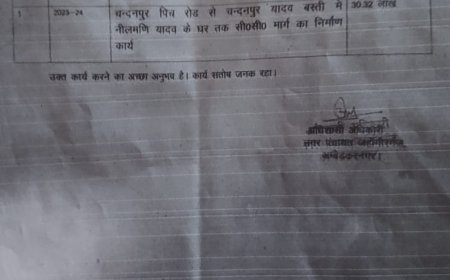 1 2023-24 चन्दनपुर पिच रोड से चन्दनपुर यादव बस्ती में 30.32 लाख
नीलमणि यादव के घर तक सी0सी0 मार्ग का निर्माण
कार्य
उक्त कार्य करने का अच्छा अनुभव है। कार्य संतोष जनक रहा।
अधिशासी अधिकारी
नगर पंचायत जहाँगीरगंज
अम्बेडकरनगर।